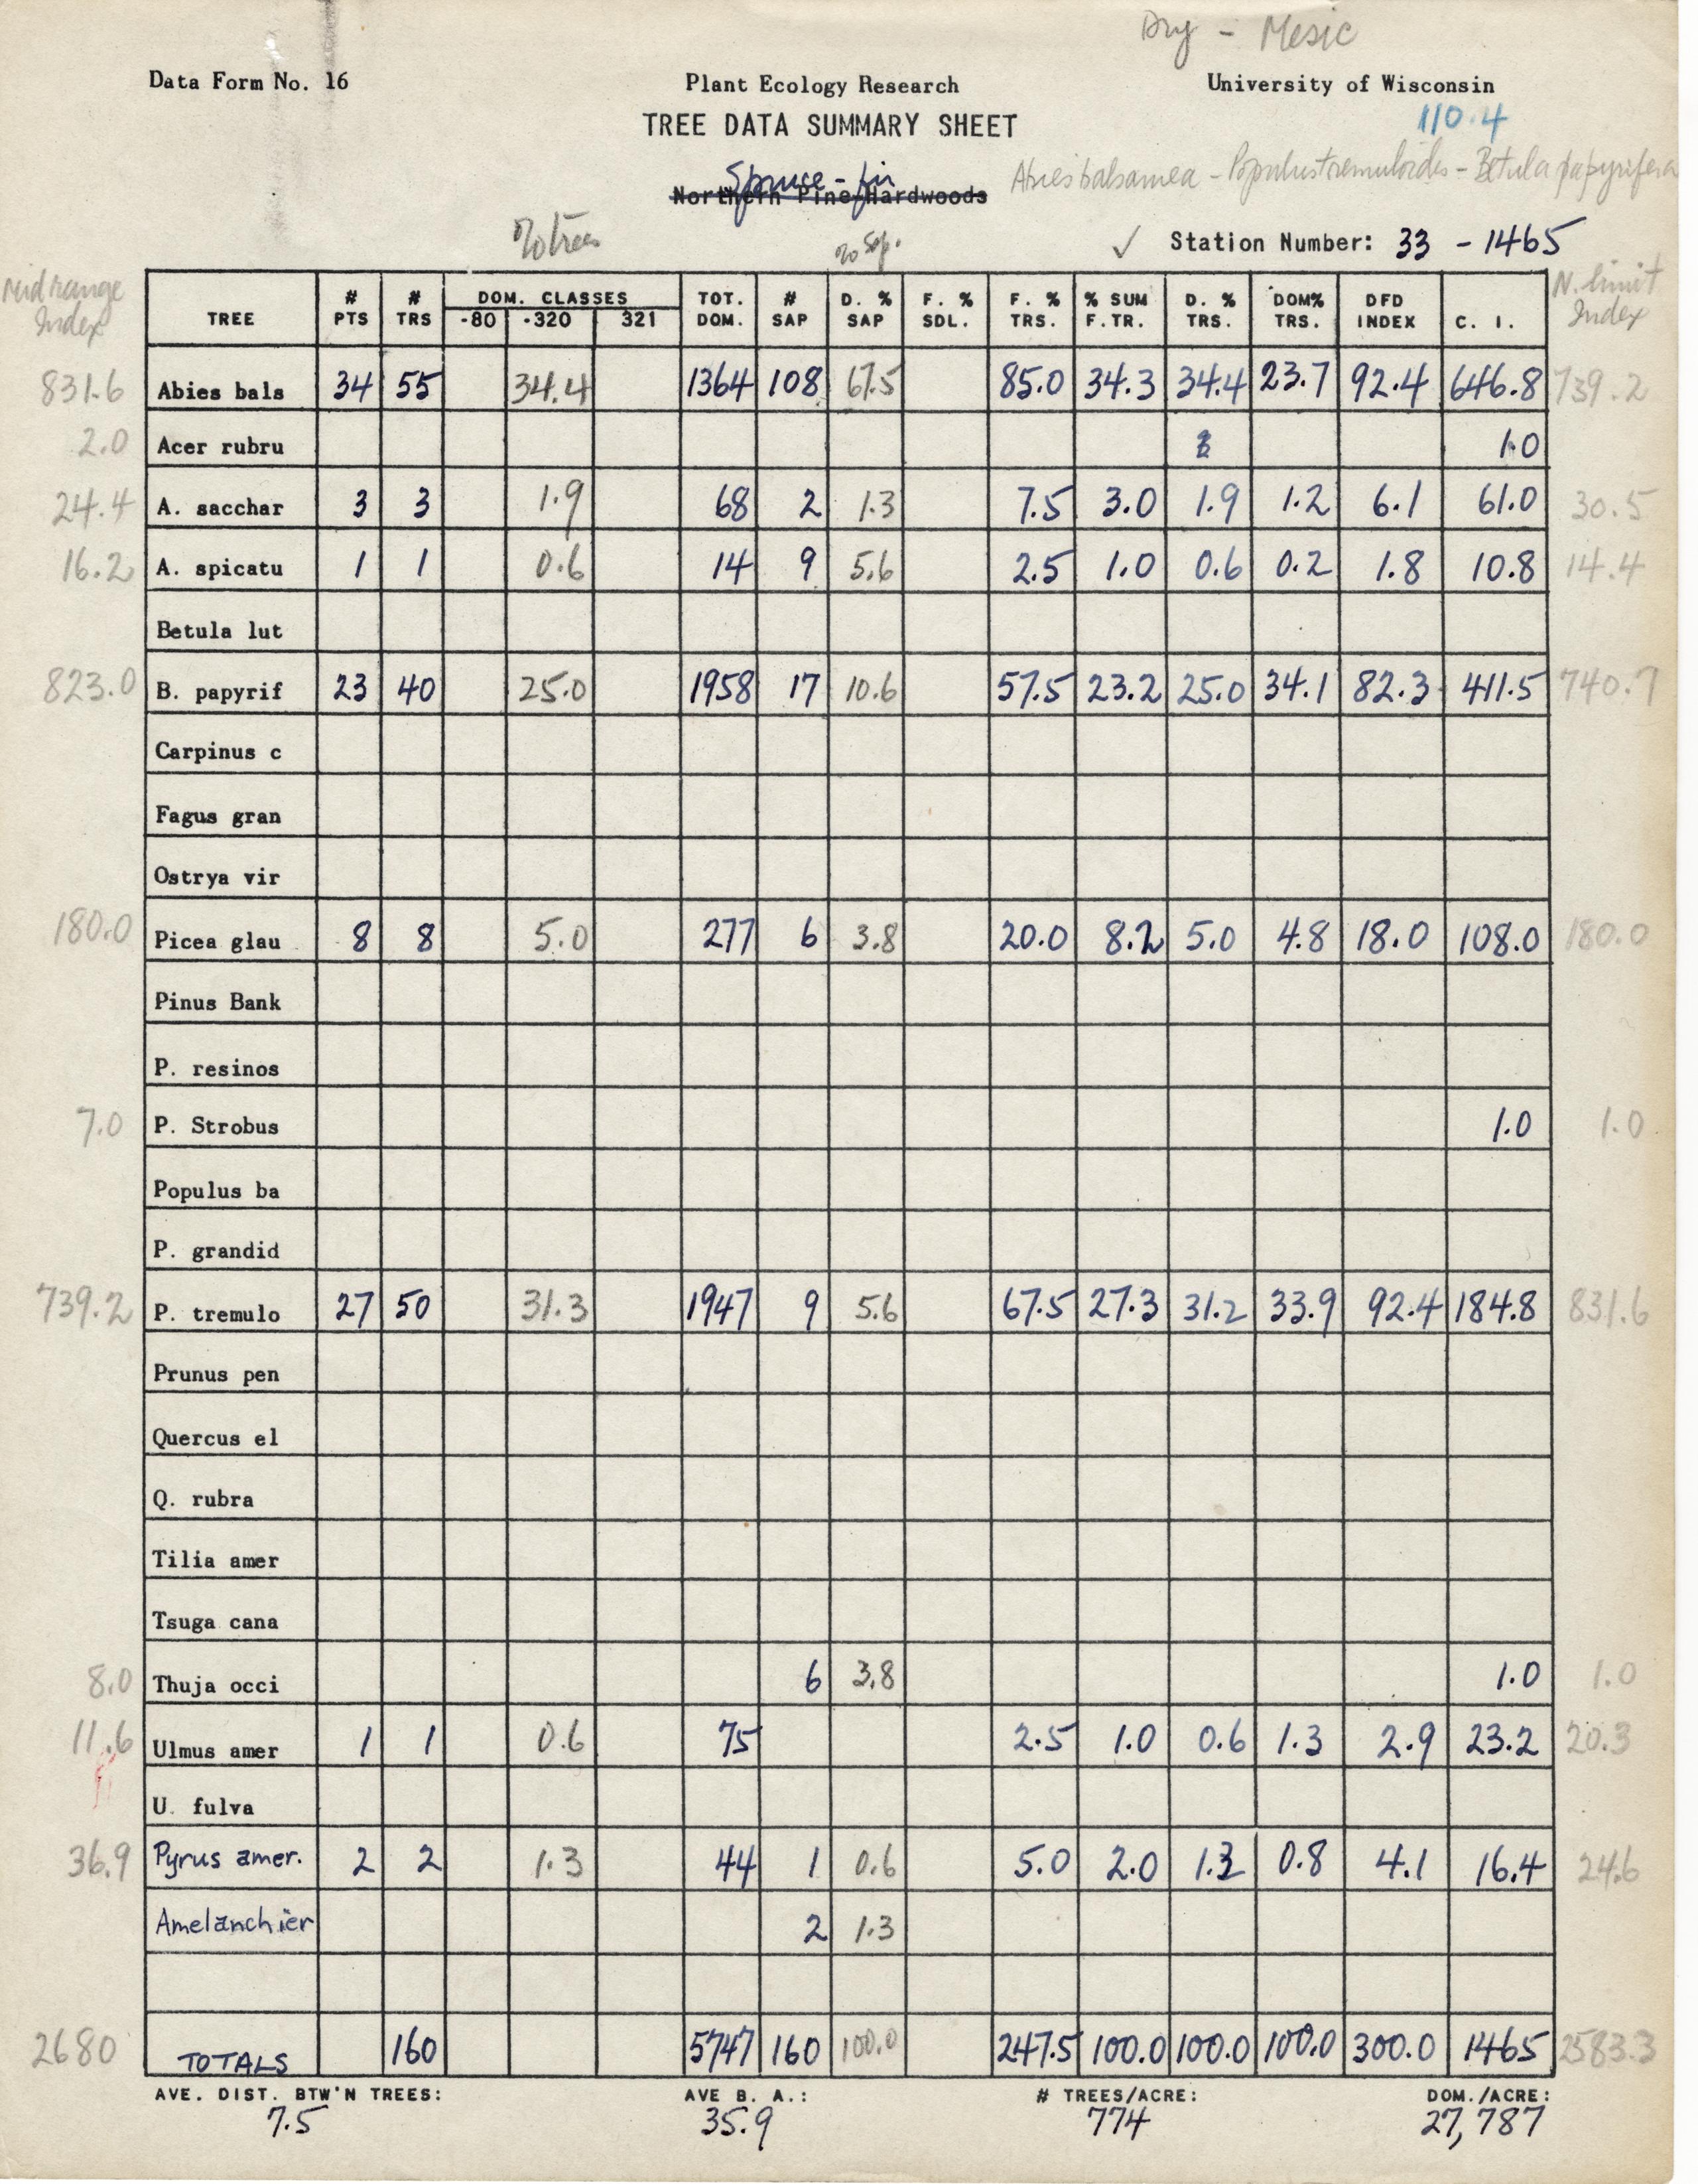 Dry - Mesic
Data Form No. 16 Plant Ecology Research University of Wisconsin
TREE DATA SUMMARY SHEET 110.4
Spruce - fir Abies balsamea - Populus tremuloides - Betula papyrifera
Northern Pine Hardwoods
% trees % Sap. ✓ Station Number: 33 - 1465
Midrange Index TREE # PTS # TRS DOM. CLASSES -80 -320 321 TOT. DOM. # SAP D. % SAP F. % SDL. F. % TRS. % SUM F. TR. D. % TRS. DOM% TRS. DFD INDEX C. I. N. limit Index
831.6 Abies bals 34 55 34.4 1364 108 67.5 85.0 34.3 34.4 23.7 92.4 646.8 739.2
2.0 Acer rubru 1.0
24.4 A. sacchar 3 3 1.9 68 2 1.3 7.5 3.0 1.9 1.2 6.1 61.0 30.5
16.2 A. spicatu 1 1 0.6 14 9 5.6 2.5 1.0 0.6 0.2 1.8 10.8 14.4
Betula lut
823.0 B. papyrif 23 40 25.0 1958 17 10.6 57.5 23.2 25.0 34.1 82.3 411.5 740.7
Carpinus c
Fagus gran
Ostrya vir
180.0 Picea glau 8 8 5.0 277 6 3.8 20.0 8.2 5.0 4.8 18.0 108.0 180.0
Pinus Bank
P. resinos
7.0 P. Strobus 1.0 1.0
Populus ba
P. grandid
739.2 P. tremulo 27 50 31.3 1947 9 5.6 67.5 27.3 31.2 33.9 92.4 184.8 831.6
Prunus pen
Quercus el
Q. rubra
Tilia amer
Tsuga cana
8.0 Thuja occi 6 3.8 1.0 1.0
11.6 Ulmus amer 1 1 0.6 75 2.5 1.0 0.6 1.3 2.9 23.2 20.3
U. fulva
36.9 Pyrus amer. 2 2 1.3 44 1 0.6 5.0 2.0 1.3 0.8 4.1 16.4 24.6
Amelanchier 2 1.3
2680 TOTALS 160 5747 160 100.0 247.5 100.0 100.0 100.0 300.0 1465 2583.3
AVE. DIST. BTW'N TREES: AVE B. A.: # TREES/ACRE: DOM./ACRE:
7.5 35.9 774 27,787